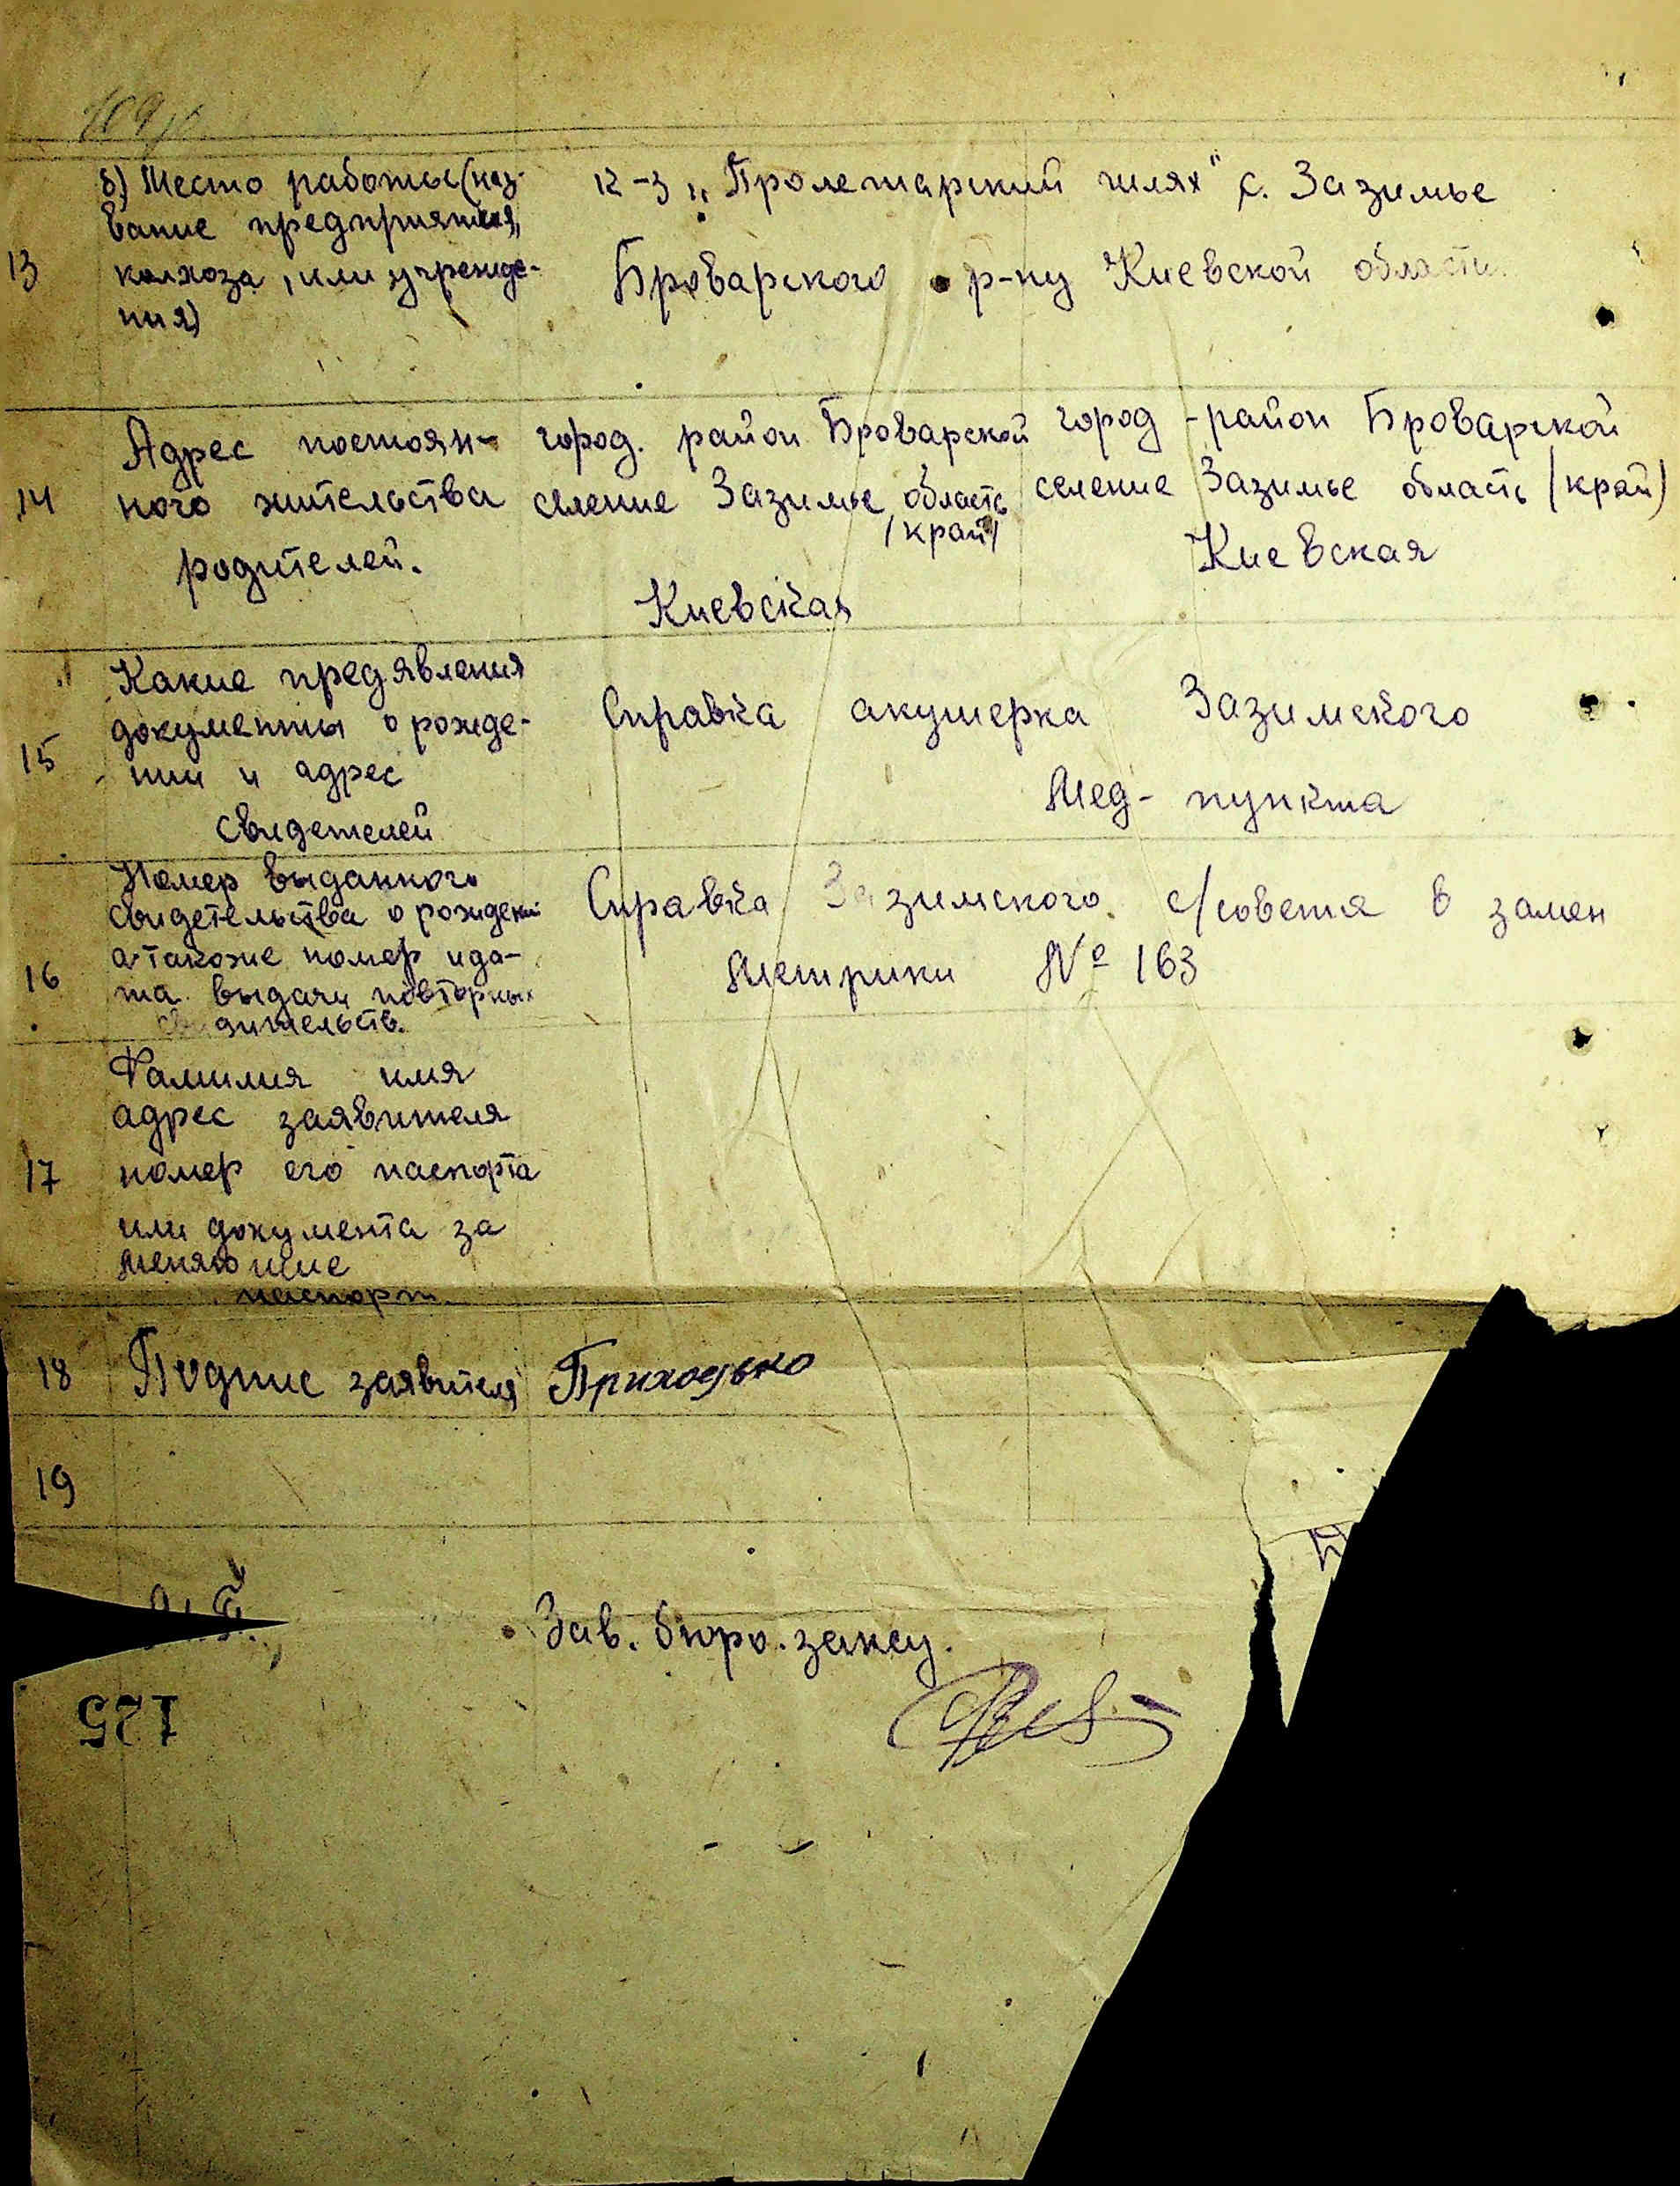 б) Место работы (наз-
вание предприятия,
13 колхоза, или учрежде-
ния)
к-з „Пролетарский шлях" с. Зазимье
Броварского р-ну Киевской области.
Адрес постоян-
14 ного жительства
родителей.
город. район Броварской
селение Зазимье область
/край/
Киевская
город - район Броварской
селение Зазимье область /край/
Киевская
Какие предявления
документы о рожде-
15 нии и адрес
свидетелей
Справка акушерка Зазимского
Мед- пункта
Номер выданного
свидетельства о рождени
а также номер и да-
16 та выдачи повторных
свидительств.
Справка Зазимского с/совета в замен
Метрики № 163
Фамилия имя
адрес заявителя
17 номер его паспорта
или документа за
меняющие
паспорт.
18 Подпис заявителя Приходько
19
Зав. бюро. загсу.
125